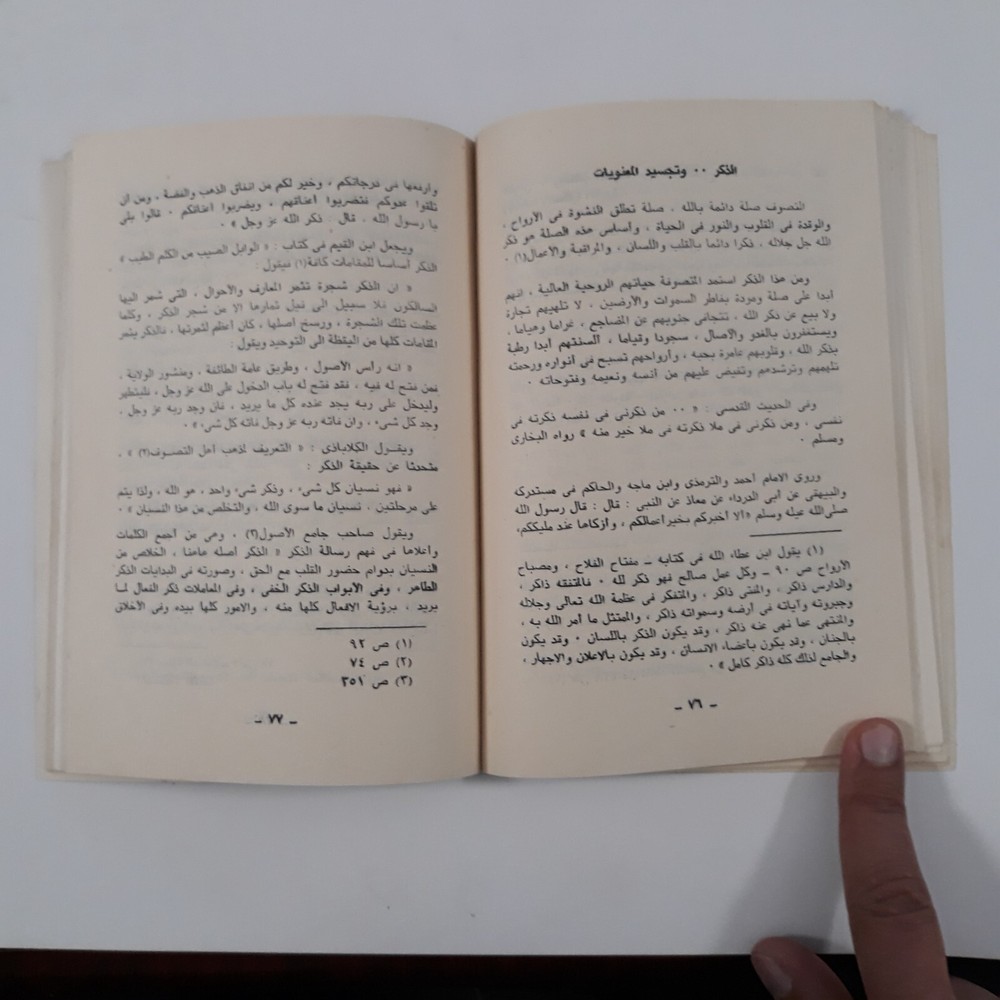 الذكر ٠٠ وتجسيد المعنويات
التصوف صلة دائمة بالله ، صلة تطلق النشوة فى الأرواح ،
والوقدة فى القلوب والنور فى الحياة ، وأساس هذه الصلة هو ذكر
الله جل جلاله ، ذكرا دائما بالقلب واللسان ، والمراقبة والأعمال(١) ٠
ومن هذا الذكر استمد المتصوفة حياتهم الروحية العالية ، انهم
أبدا على صلة ومودة بفاطر السموات والأرضين ، لا تلهيهم تجارة
ولا بيع عن ذكر الله ، تتجافى جنوبهم عن المضاجع ، غراما وهياما ،
ويستغفرون بالغدو والآصال ، سجودا وقياما ، ألسنتهم أبدا رطبة
بذكر الله ، وقلوبهم عامرة بحبه ، وأرواحهم تسبح فى أنواره ورحمته
تلهمهم وترشدهم وتفيض عليهم من أنسه ونعيمه وفتوحاته ٠
وفى الحديث القدسى : « ٠٠ من ذكرنى فى نفسه ذكرته فى
نفسى ، ومن ذكرنى فى ملا ذكرته فى ملا خير منه » رواه البخارى
ومسلم ٠
وروى الامام أحمد والترمذى وابن ماجه والحاكم فى مستدركه
والبيهقى عن أبى الدرداء عن معاذ عن النبى : قال : قال رسول الله
صلى الله عيله وسلم «ألا أخبركم بخير أعمالكم ، وأزكاها عند مليككم،
(١) يقول ابن عطاء الله فى كتابه ــ مفتاح الفلاح ، ومصباح
الأرواح ص ٩٠ ــ وكل عمل صالح فهو ذكر لله ٠ فالتفقه ذاكر ،
والدارس ذاكر ، والمفتى ذاكر ، والمتفكر فى عظمة الله تعالى وجلاله
وجبروته وآياته فى أرضه وسمواته ذاكر ، والممتثل ما أمر الله به ،
والمنتهى عما نهى عنه ذاكر ، وقد يكون الذكر باللسان ٠ وقد يكون
بالجنان ، وقد يكون بأعضاء الانسان ، وقد يكون بالاعلان والاجهار ،
والجامع لذلك كله ذاكر كامل » ٠
ــ ٧٦ ــ
وأرفعها فى درجاتكم ، وخير لكم من انفاق الذهب والفضة ، ومن أن
تلقوا عدوكم فتضربوا أعناقهم ، ويضربوا أعناقكم ٠ قالوا بلى
يا رسول الله ، قال : ذكر الله عز وجل » ٠
ويجعل ابن القيم فى كتاب : « الوابل الصيب من الكلم الطيب »
الذكر أساسا للمقامات كافة(١) فيقول :
« ان الذكر شجرة تثمر المعارف والأحوال ، التى شمر اليها
السالكون فلا سبيل الى نيل ثمارها الا من شجر الذكر ، وكلما
عظمت تلك الشجرة ، ورسخ أصلها ، كان أعظم لثمرتها ، فالذكر يثمر
المقامات كلها من اليقظة الى التوحيد ويقول :
« انه رأس الأصول ، وطريق عامة الطائفة ، ومنشور الولاية ،
فمن فتح له فيه ، فقد فتح له باب الدخول على الله عز وجل ، فليتطهر
وليدخل على ربه يجد عنده كل ما يريد ، فان وجد ربه عز وجل ،
وجد كل شىء ، وان فاته ربه عز وجل فاته كل شىء» ٠
ويقول الكلاباذى : « التعريف لمذهب أهل التصوف(٢) » ،
متحدثا عن حقيقة الذكر :
« فهو نسيان كل شىء ، وذكر شىء واحد ، هو الله ، ولذا يتم
على مرحلتين ، نسيان ما سوى الله ، والتخلص من هذا النسيان » ٠
ويقول صاحب جامع الأصول(٣) ، وهى من أجمع الكلمات
وأعلاها فى فهم رسالة الذكر « الذكر أصله هاهنا ، الخلاص من
النسيان بدوام حضور القلب مع الحق ، وصورته فى البدايات الذكر
الظاهر ، وفى الأبواب الذكر الخفى ، وفى المعاملات ذكر الفعال لما
يريد ، برؤية الافعال كلها منه ، والامور كلها بيده وفى الأخلاق
(١) ص ٩٢
(٢) ص ٧٤
(٣) ص ٢٥١
ــ ٧٧ ــ